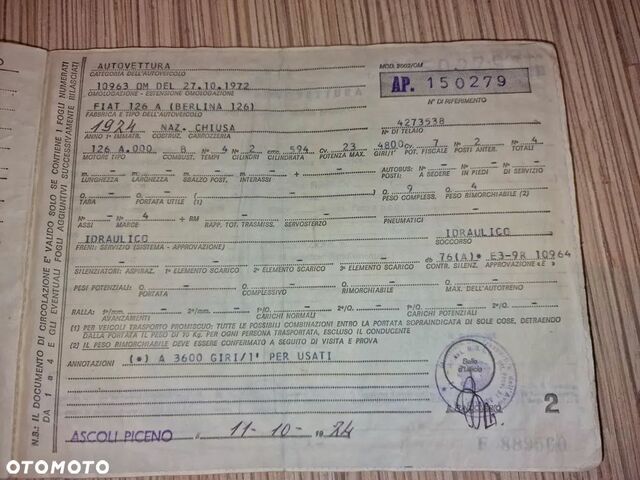 AUTOVETTURA
CATEGORIA DELL'AUTOVEICOLO
MOD. 2002/OM
10963 OM DEL 27.10.1972
OMOLOGAZIONE - ESTENSIONE OMOLOGAZIONE
AP. 150279
N° DI RIFERIMENTO
FIAT 126 A (BERLINA 126)
FABBRICA E TIPO DELL'AUTOVEICOLO
1974 NAZ. CHIUSA 4273538
ANNO 1ª IMMATR. COSTRUZ. CARROZZERIA N° DI TELAIO
126 A.000 B N° 4 N° 2 cm³ 594 CV 23 4800 CV 7 N° 2 N° 4
MOTORE TIPO COMBUST. TEMPI CILINDRI CILINDRATA POTENZA MAX. GIRI/1' POT. FISCALE POSTI ANTER. TOTALI
m. — m. — m. — m. — + — AUTOBUS: N° — N° — N° —
LUNGHEZZA LARGHEZZA SBALZO POST. INTERASSI POSTI: A SEDERE IN PIEDI DI SERVIZIO
Q. — Q. — Q. 9 Q. 4
TARA PORTATA UTILE (1) PESO COMPLESS. PESO RIMORCHIABILE (2)
N° — N° 4 + RM — —
ASSI MARCE RAPP. TOT. TRASMISS. SERVOSTERZO PNEUMATICI
IDRAULICO IDRAULICO
FRENI: SERVIZIO (SISTEMA - APPROVAZIONE) SOCCORSO
— — — — db 76(A)• E3-9R 10964
SILENZIATORI: ASPIRAZ. 1° ELEMENTO SCARICO 2° ELEMENTO SCARICO 3° ELEMENTO SCARICO CONTR. SILENZ. APPROVAZIONE
PESI POTENZIALI: Q. — Q. — Q. — Q. —
PORTATA COMPLESSIVO RIMORCHIABILE MAX. DELL'AUTOTRENO
RALLA: 1ª/mm. — 2ª/mm. — 1ª/Q. — 2ª/Q. — 1ª/Q. — 2ª/Q. —
AVANZAMENTI CARICHI NORMALI CARICHI POTENZIALI
(1) PER VEICOLI TRASPORTO PROMISCUO; TUTTE LE POSSIBILI COMBINAZIONI ENTRO LA PORTATA SOPRAINDICATA DI SOLE COSE, DETRAENDO
DALLA PORTATA IL PESO DI 70 Kg. PER OGNI PERSONA TRASPORTATA, ESCLUSO IL CONDUCENTE
(2) IL PESO RIMORCHIABILE DEVE ESSERE CONFERMATO A SEGUITO DI VISITA E PROVA
ANNOTAZIONI (•) A 3600 GIRI/1' PER USATI
Bollo d'Ufficio
ASCOLI PICENO 11-10-1974
2
N.B.: IL DOCUMENTO DI CIRCOLAZIONE E' VALIDO SOLO SE CONTIENE I FOGLI NUMERATI
DA 1 a 4 E GLI EVENTUALI FOGLI AGGIUNTIVI SUCCESSIVAMENTE RILASCIATI
OTOMOTO